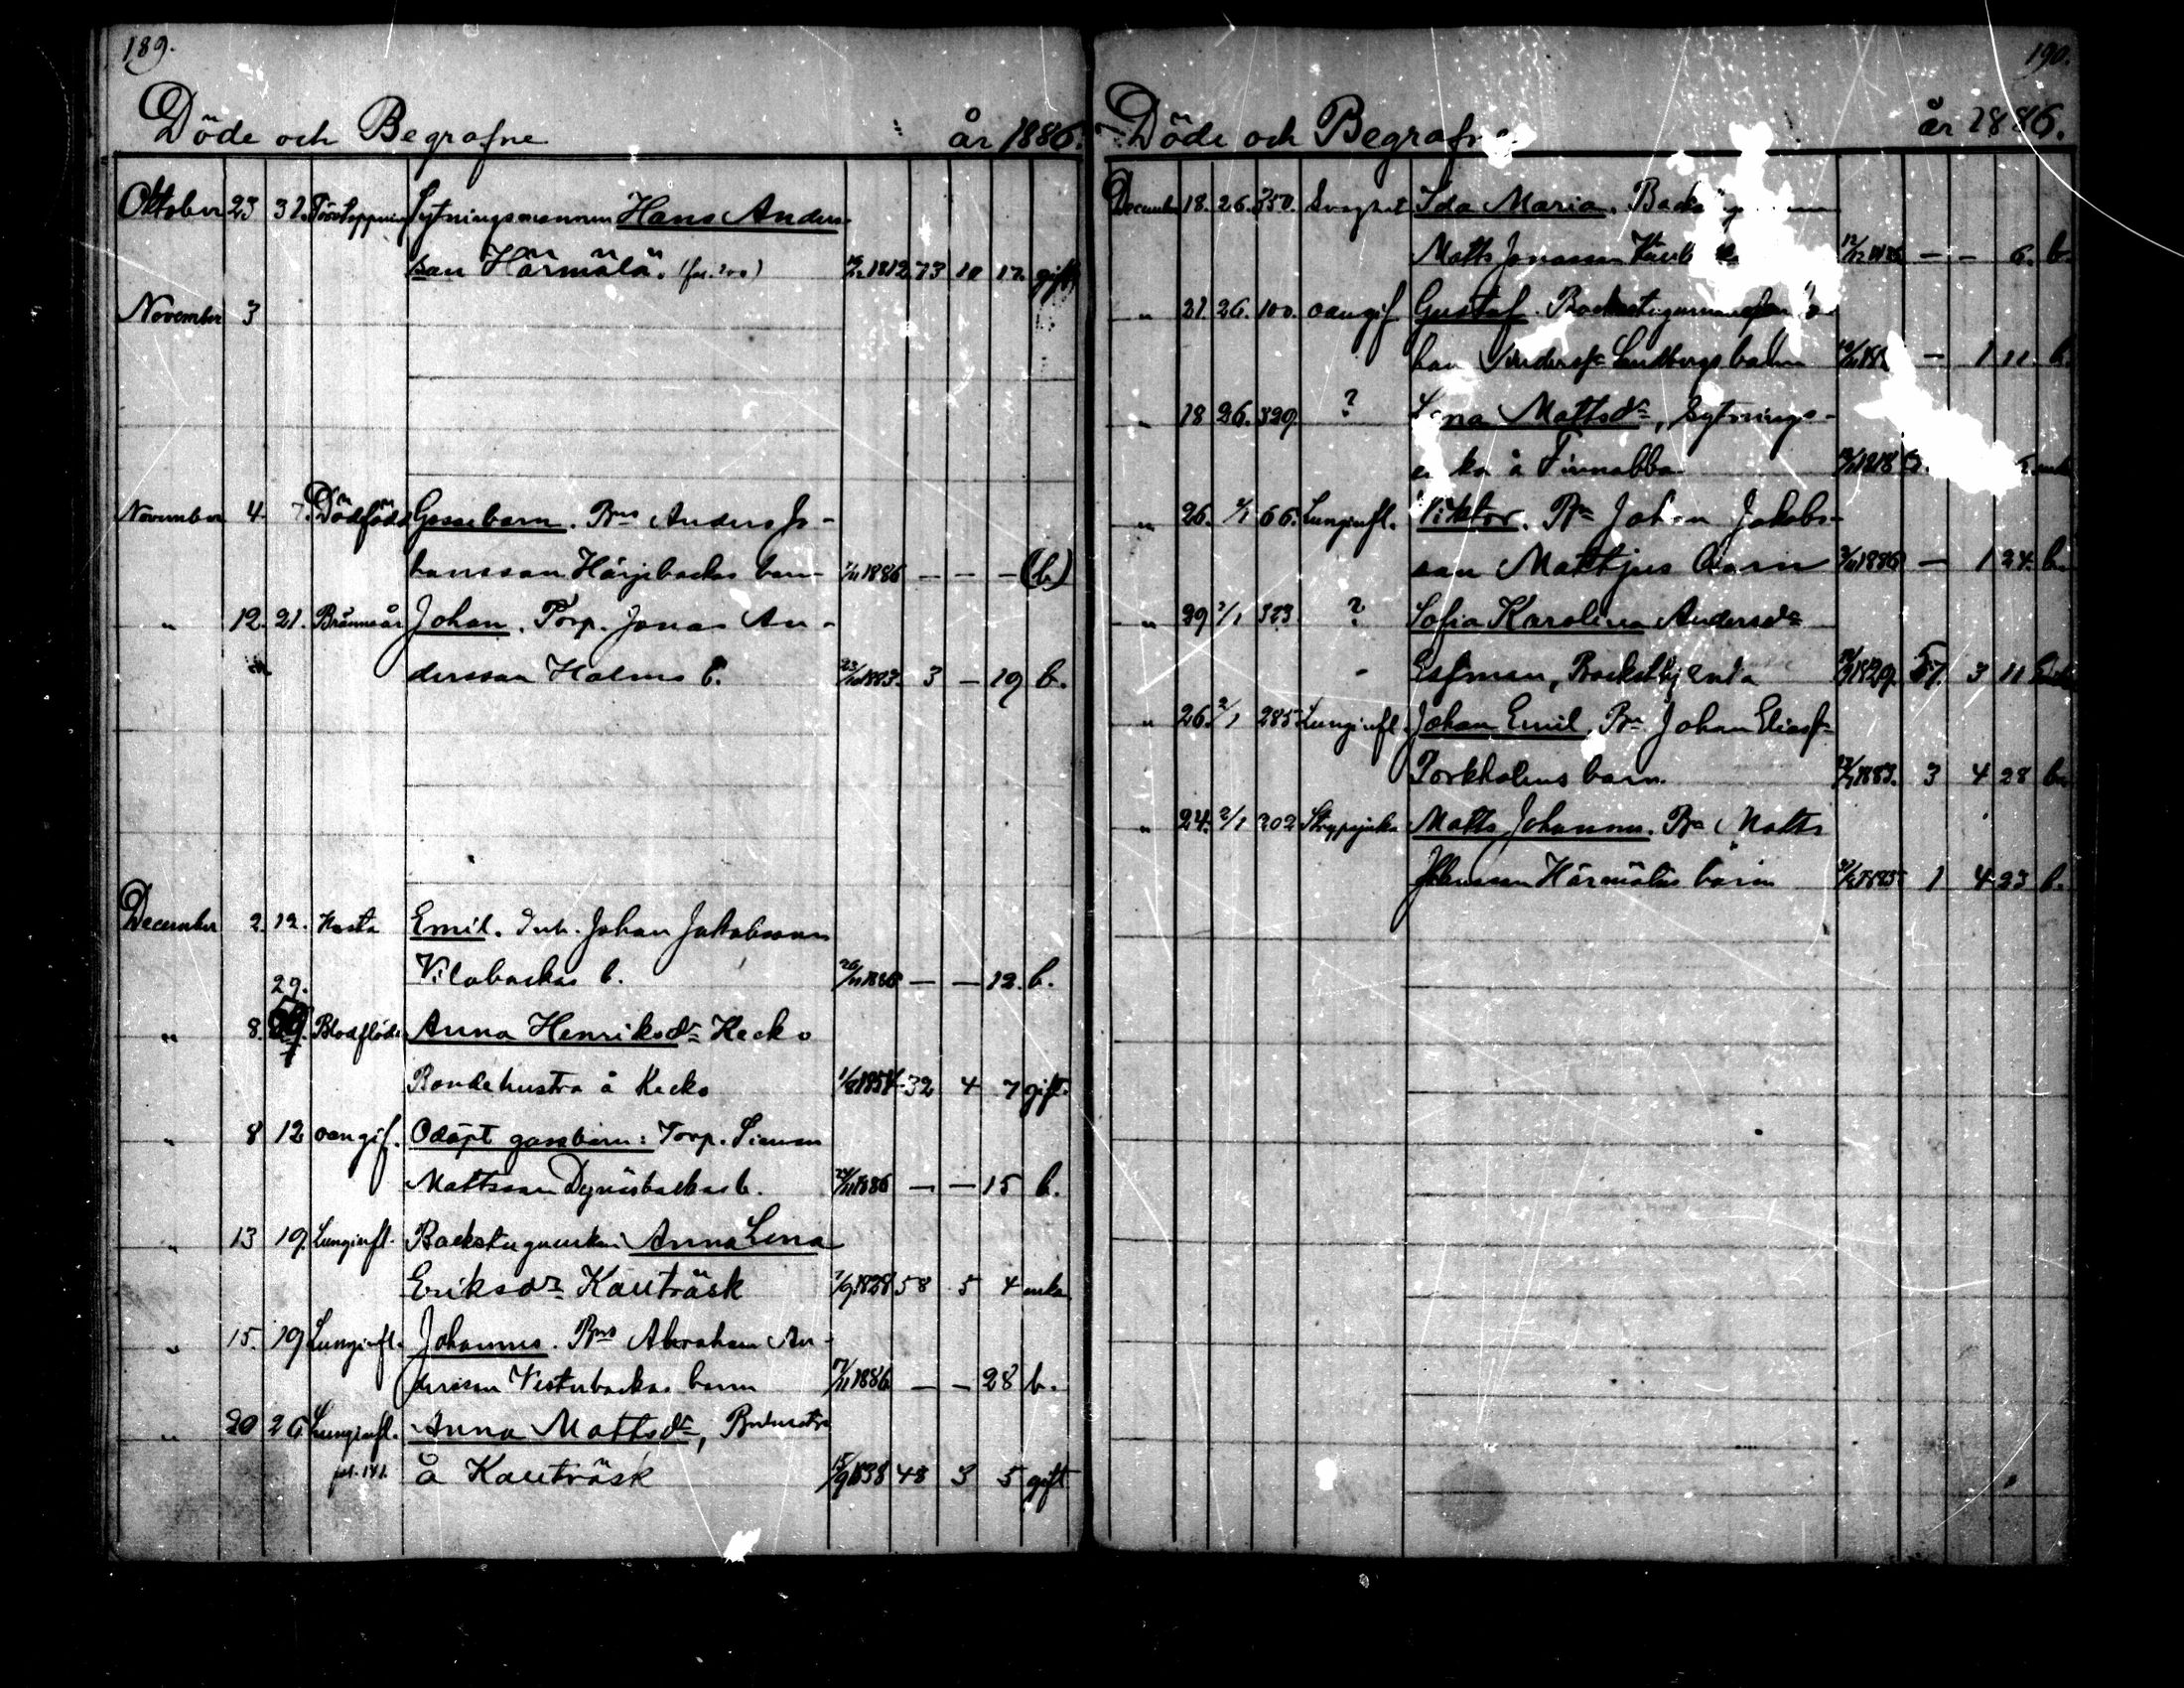 189.
Döde och Begrafne år 1886.
Oktober 23 31. Förstoppning Sytningsmannen Hans Anders-
son Härmälä. (fol. 200) 1812 73 10 12. gift
November 3
November 4. 7. Dödfödd Gossebarn. Bns Anders Jo-
hansson Härjebackas barn 1886 — — — (b.)
" 12. 21. Brännsår Johan. Torp. Jonas An-
dersson Holms b. 23/10 1883. 3 — 19 b.
December 2. 12. Hosta Emil. Inh. Johan Jakobsson
Vilobackas b. 20/11 1886 — — 12. b.
29.
" 8. Blodflöde Anna Henriksdr Kecko
Bondehustru å Kecko 1/8 1854 32 4 7 gift.
" 8 12 oangif. Odöpt gossebarn: Torp. Simon
Mattsson b. 24/11 1886 — — 15 b.
" 13 19. Lunginfl. Backstuguenkan Anna Lena
Eriksdr Kauträsk 7/9 1828 58 5 4 enka
" 15. 19 Lunginfl. Johannes. Bns Abraham An-
dersson Vesterbackas barn 17/11 1886 — — 28 b.
" 20 26 Lunginfl. Anna Mattsdr, Bndhustru
fol. 141. å Kauträsk 15/9 1838 48 3 5 gift
190.
Döde och Begrafne år 1886.
December 18. 26. 350. Svaghet Ida Maria.
Matts Jonasson 12/12 — — 6. b.
" 21 26. 100. oangif Gustaf. Backstugumannen
han Anderss Lundbergs barn — 1 11. b.
" 18 26. 329. ? Mattsdr, Sytnings-
å Finnabba 1818 enka
" 26. 2/1 66. Lunginfl. Viktor. Bn Johan Jakobs-
son Mattjus barn 2/11 1886 — 1 24. b.
" 29 2/1 323 ? Sofia Karolina Andersdr
Essman, 1829. 57. 3 11
" 26. 2/1 285 Lunginfl. Johan Emil, Bn Johan Eliass
Porkholms barn. 1883. 3 4 28 b.
" 24. 2/1 202 Strypsjuka Matts Johannes. Bn Matts
Johansson Härmälas barn 1885 1 4 23 b.